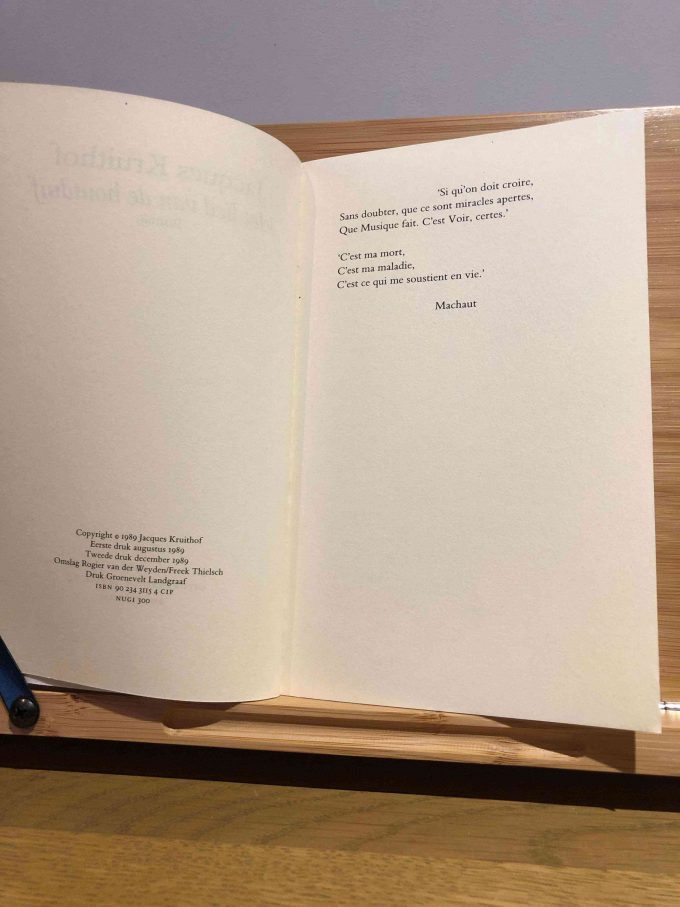 Copyright © 1989 Jacques Kruithof
Eerste druk augustus 1989
Tweede druk december 1989
Omslag Rogier van der Weyden/Freek Thielsch
Druk Groenevelt Landgraaf
ISBN 90 234 3115 4 CIP
NUGI 300
‘Si qu’on doit croire,
Sans doubter, que ce sont miracles apertes,
Que Musique fait. C’est Voir, certes.’
‘C’est ma mort,
C’est ma maladie,
C’est ce qui me soustient en vie.’
Machaut